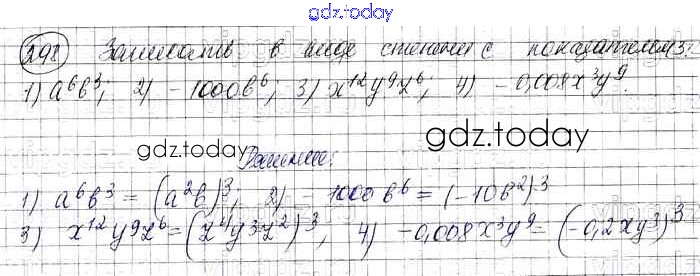 gdz.today
298 Записать в виде степени с показателем 3:
1) a⁶b³; 2) - 1000b⁶; 3) x¹²y⁹z⁶; 4) - 0,008x³y⁹.
gdz.today
gdz.today
Решение:
1) a⁶b³ = (a²b)³; 2) - 1000 b⁶ = (-10b²)³
3) x¹²y⁹z⁶ = (z⁴y³z²)³; 4) -0,008x³y⁹ = (-0,2xy³)³